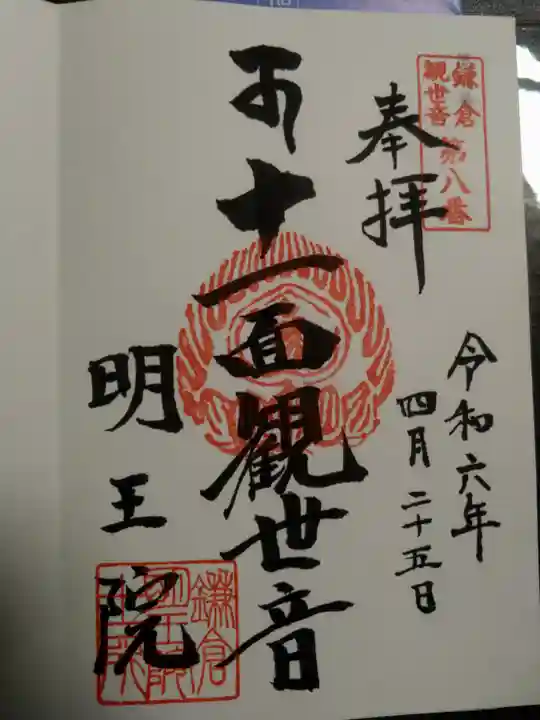 鎌倉
観世音
第八番
奉拝
令和六年
四月二十五日
十一面観世音
明王院
鎌倉
明王院